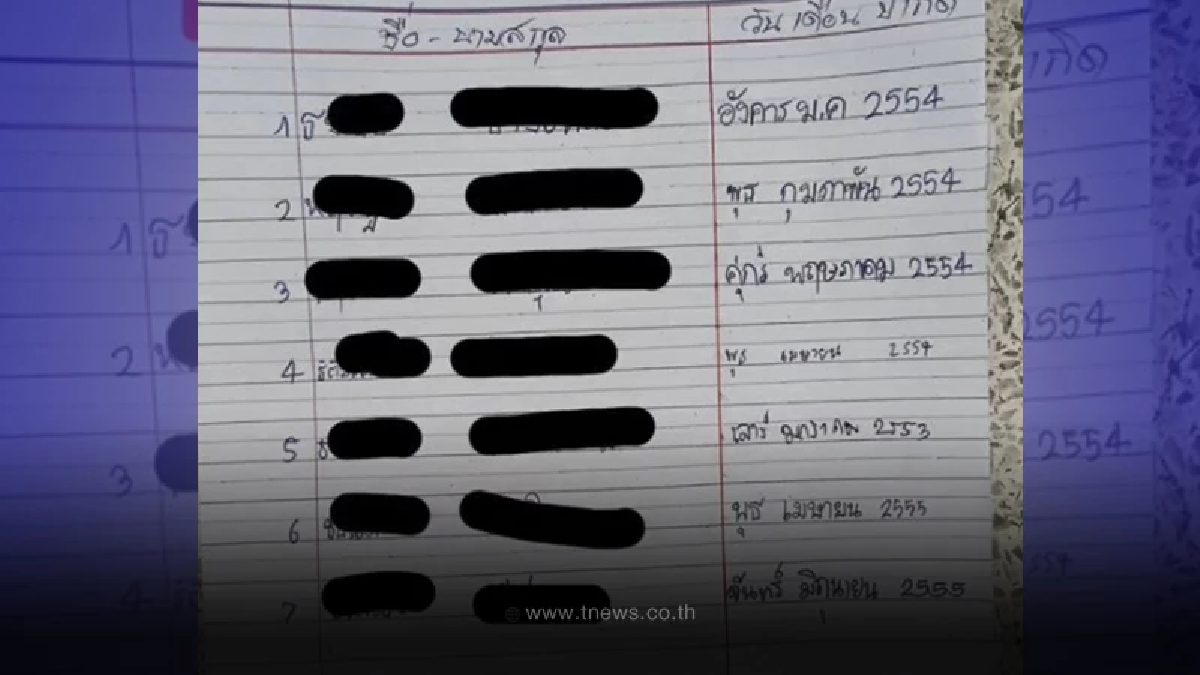 ชื่อ - นามสกุล วัน เดือน ปีเกิด
1 อังคาร ม.ค 2554
2 พุธ กุมภาพัน 2554
3 ศุกร์ พฤษภาคม 2554
4 พุธ เมษายน 2554
5 เสาร์ มกราคม 2553
6 พุธ เมษายน 2555
7 จันทร์ มิถุนายน 2555
www.tnews.co.th